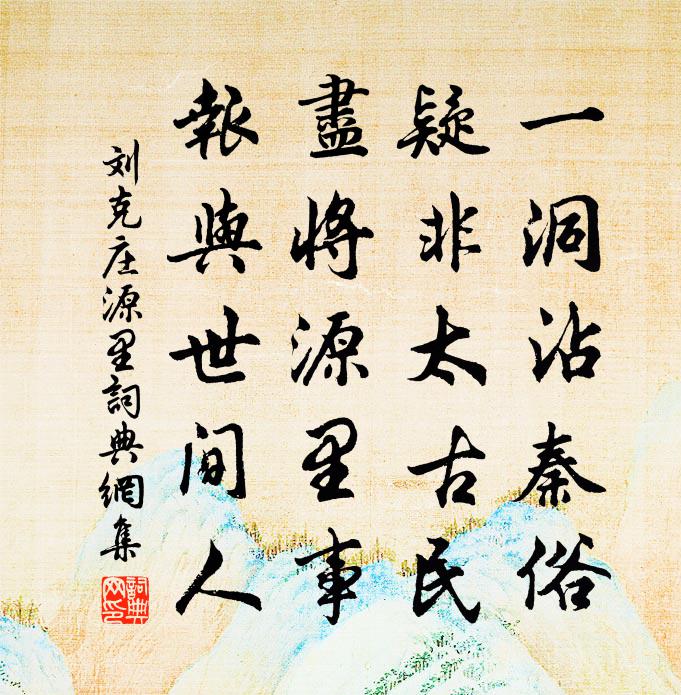 一洞沾秦俗
疑非太古民
盡將源里事
報與世間人
刘克庄源里詞典網集
詞典网印